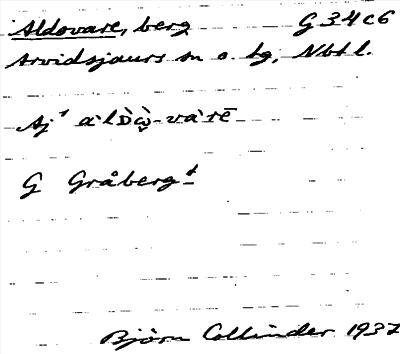 Aldovare, berg G 34 c 6
Arvidsjaurs sn o. tg, Nbt l.
Aj¹ a`lDὼ-va`rē
G Gråberg t
Björn Collinder 1937